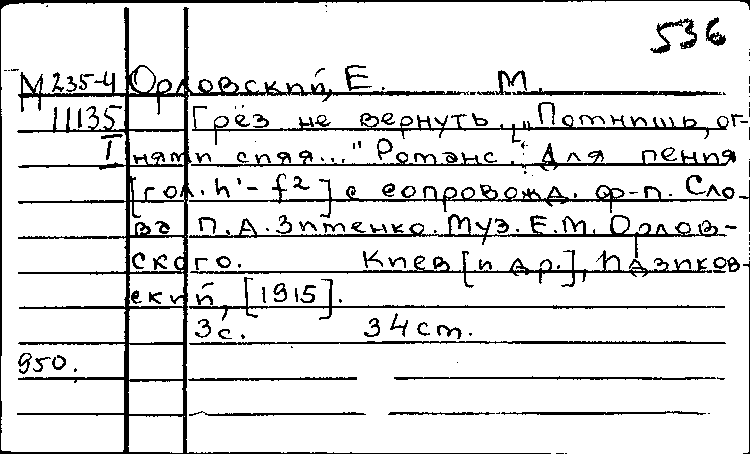 536
М 235-4 Орловский, Е. М.
11135 Грёз не вернуть. [„Помнишь, ог-
I нями сияя..." Романс. Для пения
[гол. h'-f2] с сопровожд. ф-п. Сло-
ва П. А. Зитенко. Муз. Е. М. Орлов-
ского. Киев [и др.], Идзиков-
ский, [1915].
3с. 34 cm.
950.